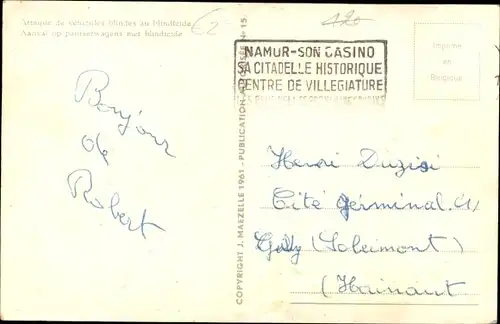 Attaque de véhicules blindés au Blindicide
Aanval op pantserwagens met blindicide
€2
120
NAMUR-SON CASINO
SA CITADELLE HISTORIQUE
CENTRE DE VILLEGIATURE
Imprimé
en
Belgique
Bonjour
de
Robert
COPYRIGHT J. MAEZELLE 1961 - PUBLICATION N° 15
Henri
Cité Germinal
Gilly (Soleilmont)
(Hainaut)